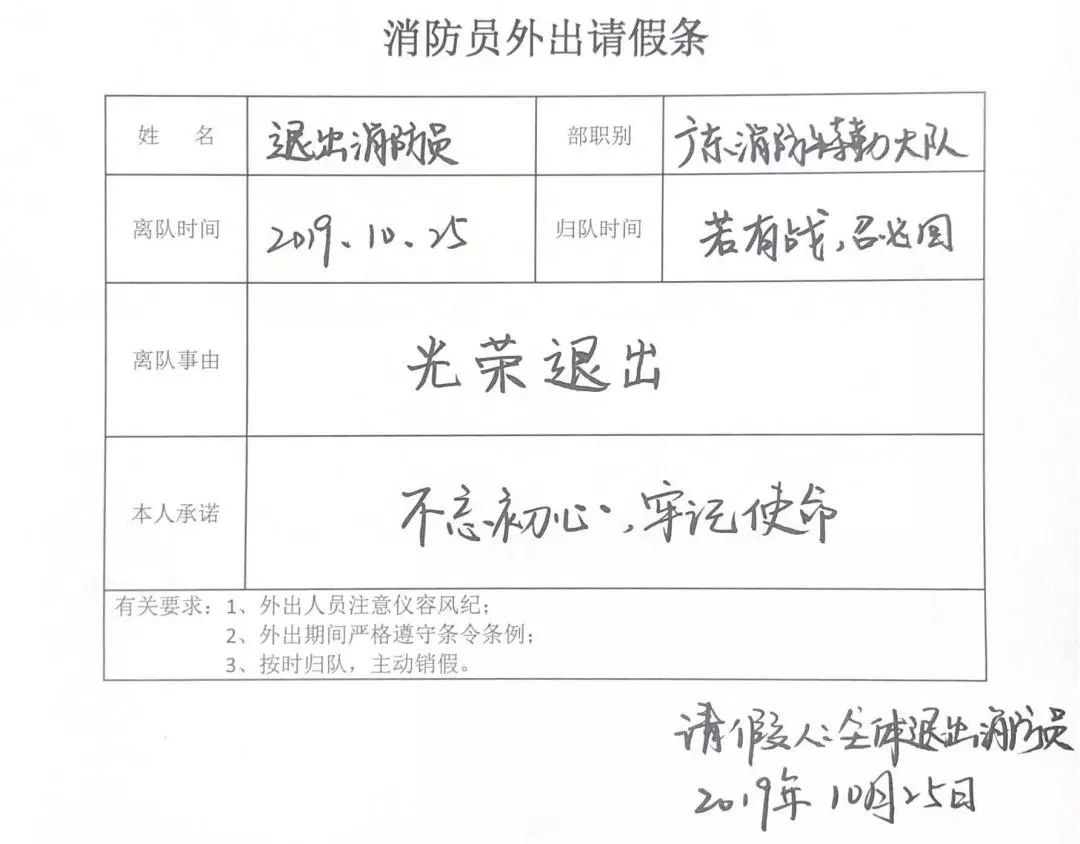 消防员外出请假条
姓 名 退出消防员 部职别 广东消防特勤大队
离队时间 2019、10、25 归队时间 若有战,召必回
离队事由 光荣退出
本人承诺 不忘初心,牢记使命
有关要求：1、外出人员注意仪容风纪；
2、外出期间严格遵守条令条例；
3、按时归队，主动销假。
请假人:全体退出消防员
2019年10月25日